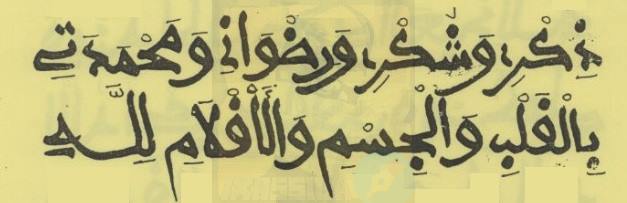 ذِكْرِ، وَشُكْرِ، وَرِضْوَانِ وَمَحْمَدَتِے
بِالْقَلْبِ وَالْجِسْمِ وَالْأَقْلَامِ لِلَّهِ